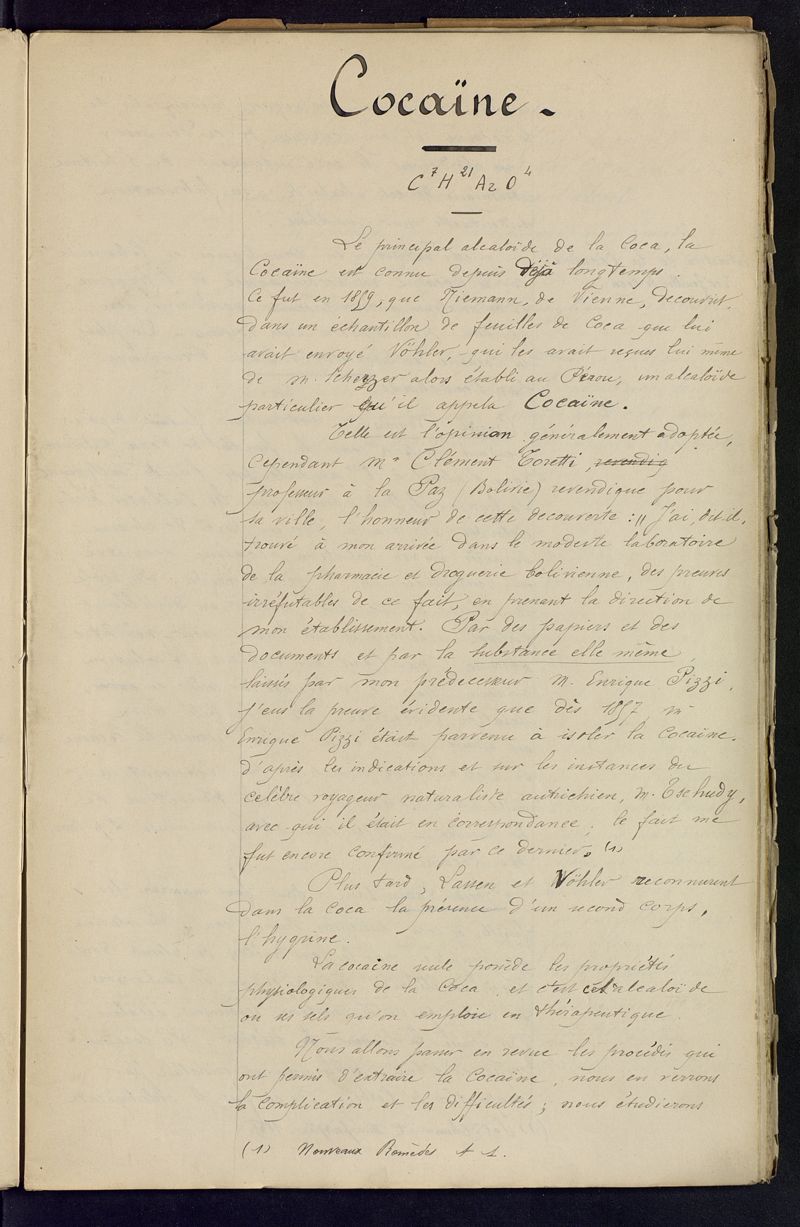 Cocaïne.
C⁷H²¹AzO⁴
Le principal alcaloïde de la Coca, la
Cocaïne est connu depuis déjà longtemps.
Ce fut en 1859, que Niemann, de Vienne, decouvrit,
dans un échantillon de feuilles de Coca que lui
avait envoyé Vöhler, qui les avait reçues lui même
de M. Scherzer alors établi au Pérou, un alcaloïde
particulier qu'il appela Cocaïne.
Telle est l'opinion généralement adoptée,
cependant Mr Clément Toretti, revendiq
professeur à la Paz (Bolivie) revendique pour
sa ville, l'honneur de cette decouverte : " J'ai, dit-il,
trouvé à mon arrivée dans le modeste laboratoire
de la pharmacie et droguerie bolivienne, des preuves
irréfutables de ce fait, en prenant la direction de
mon établissement. Par des papiers et des
documents et par la substance elle même,
laissés par mon prédecesseur M. Enrique Pizzi,
j'eus la preuve évidente que dès 1857, Mr
Enrique Pizzi était parvenu à isoler la Cocaïne.
d'après les indications et sur les instances du
célèbre voyageur naturaliste autrichien, M. Tschudy,
avec qui il était en correspondance, le fait me
fut encore confirmé par ce dernier. (1)
Plus tard, Lassen et Vöhler reconnurent
dans la coca la présence d'un second corps,
l'hygrine.
La cocaïne seule possède les propriétés
physiologiques de la Coca, et c'est cet alcaloïde
ou ses sels qu'on emploie en thérapeutique.
Nous allons passer en revue les procédés qui
ont permis d'extraire la Cocaïne, nous en verrons
la complication et les difficultés ; nous étudierons
(1) Nouveaux Remèdes